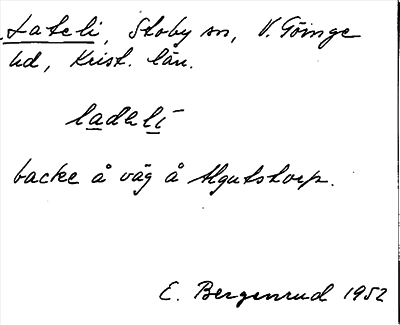 Lateli, Stoby sn, V. Göinge
hd, Krist. län.
ladəlí
backe å väg å Algutstorp.
E. Bergenrud 1952